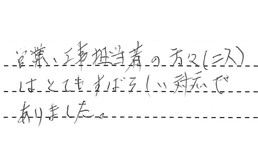 営業、工事担当者の方々(ニス)
はとてもすばらしい対応で
ありました。